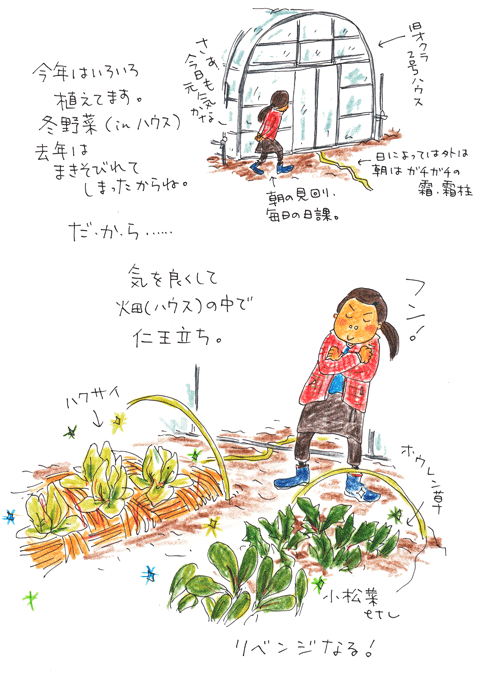 今年はいろいろ
植えてます。
冬野菜(inハウス)
去年は
まきそびれて
しまったからね。
だ・か・ら……
さぁ
今日も
元気かなー
旧オクラ
2号ハウス
朝の見回り、
毎日の日課。
日によってはタトは
朝はガチガチの
霜、霜柱
気を良くして
畑(ハウス)の中で
仁王立ち。
フン!
ハクサイ
ホウレン草
小松菜
etc
リベンジなる!